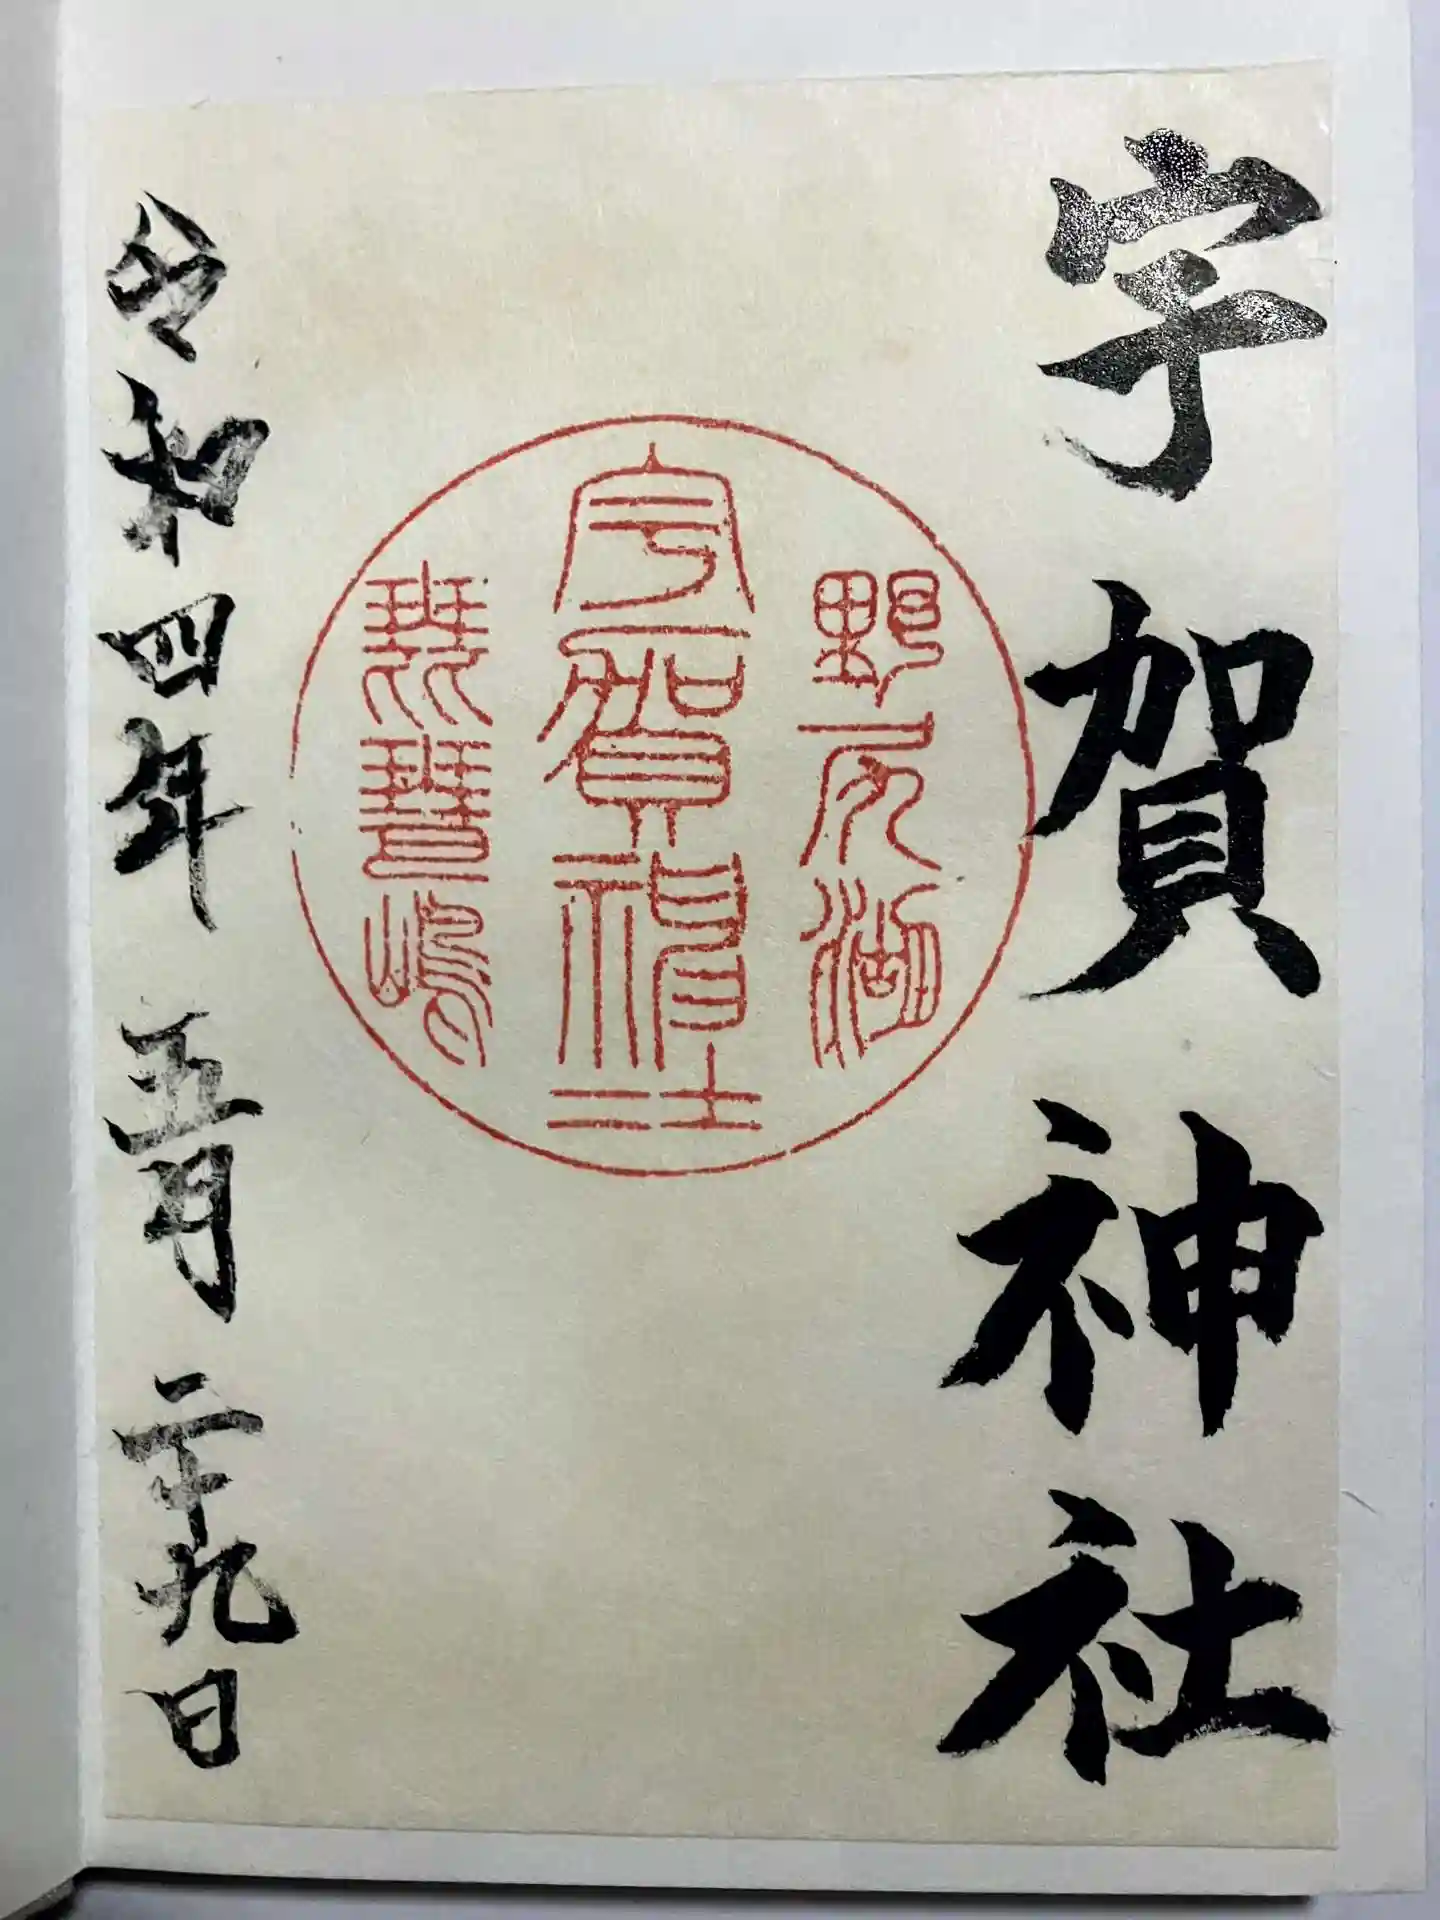 宇賀神社
野尻湖
宇賀神社
琵琶嶋
令和四年 五月 二十九日